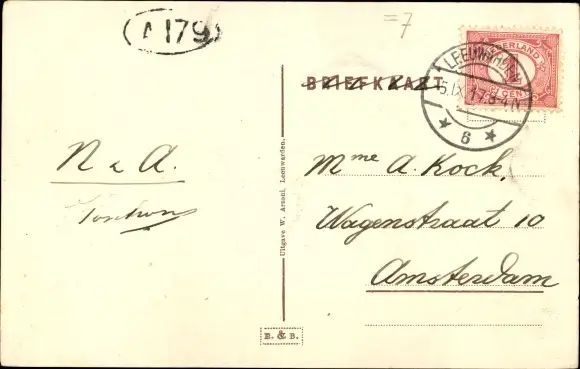 A 179
=7
NEDERLAND
1
CENT
LEEUWARDEN
5.IX.17.3-4N
6
BRIEFKAART
N & A.
Mme A. Kock,
Wagenstraat 10
Amsterdam
Uitgave W. Arsoni, Leeuwarden.
B. & B.